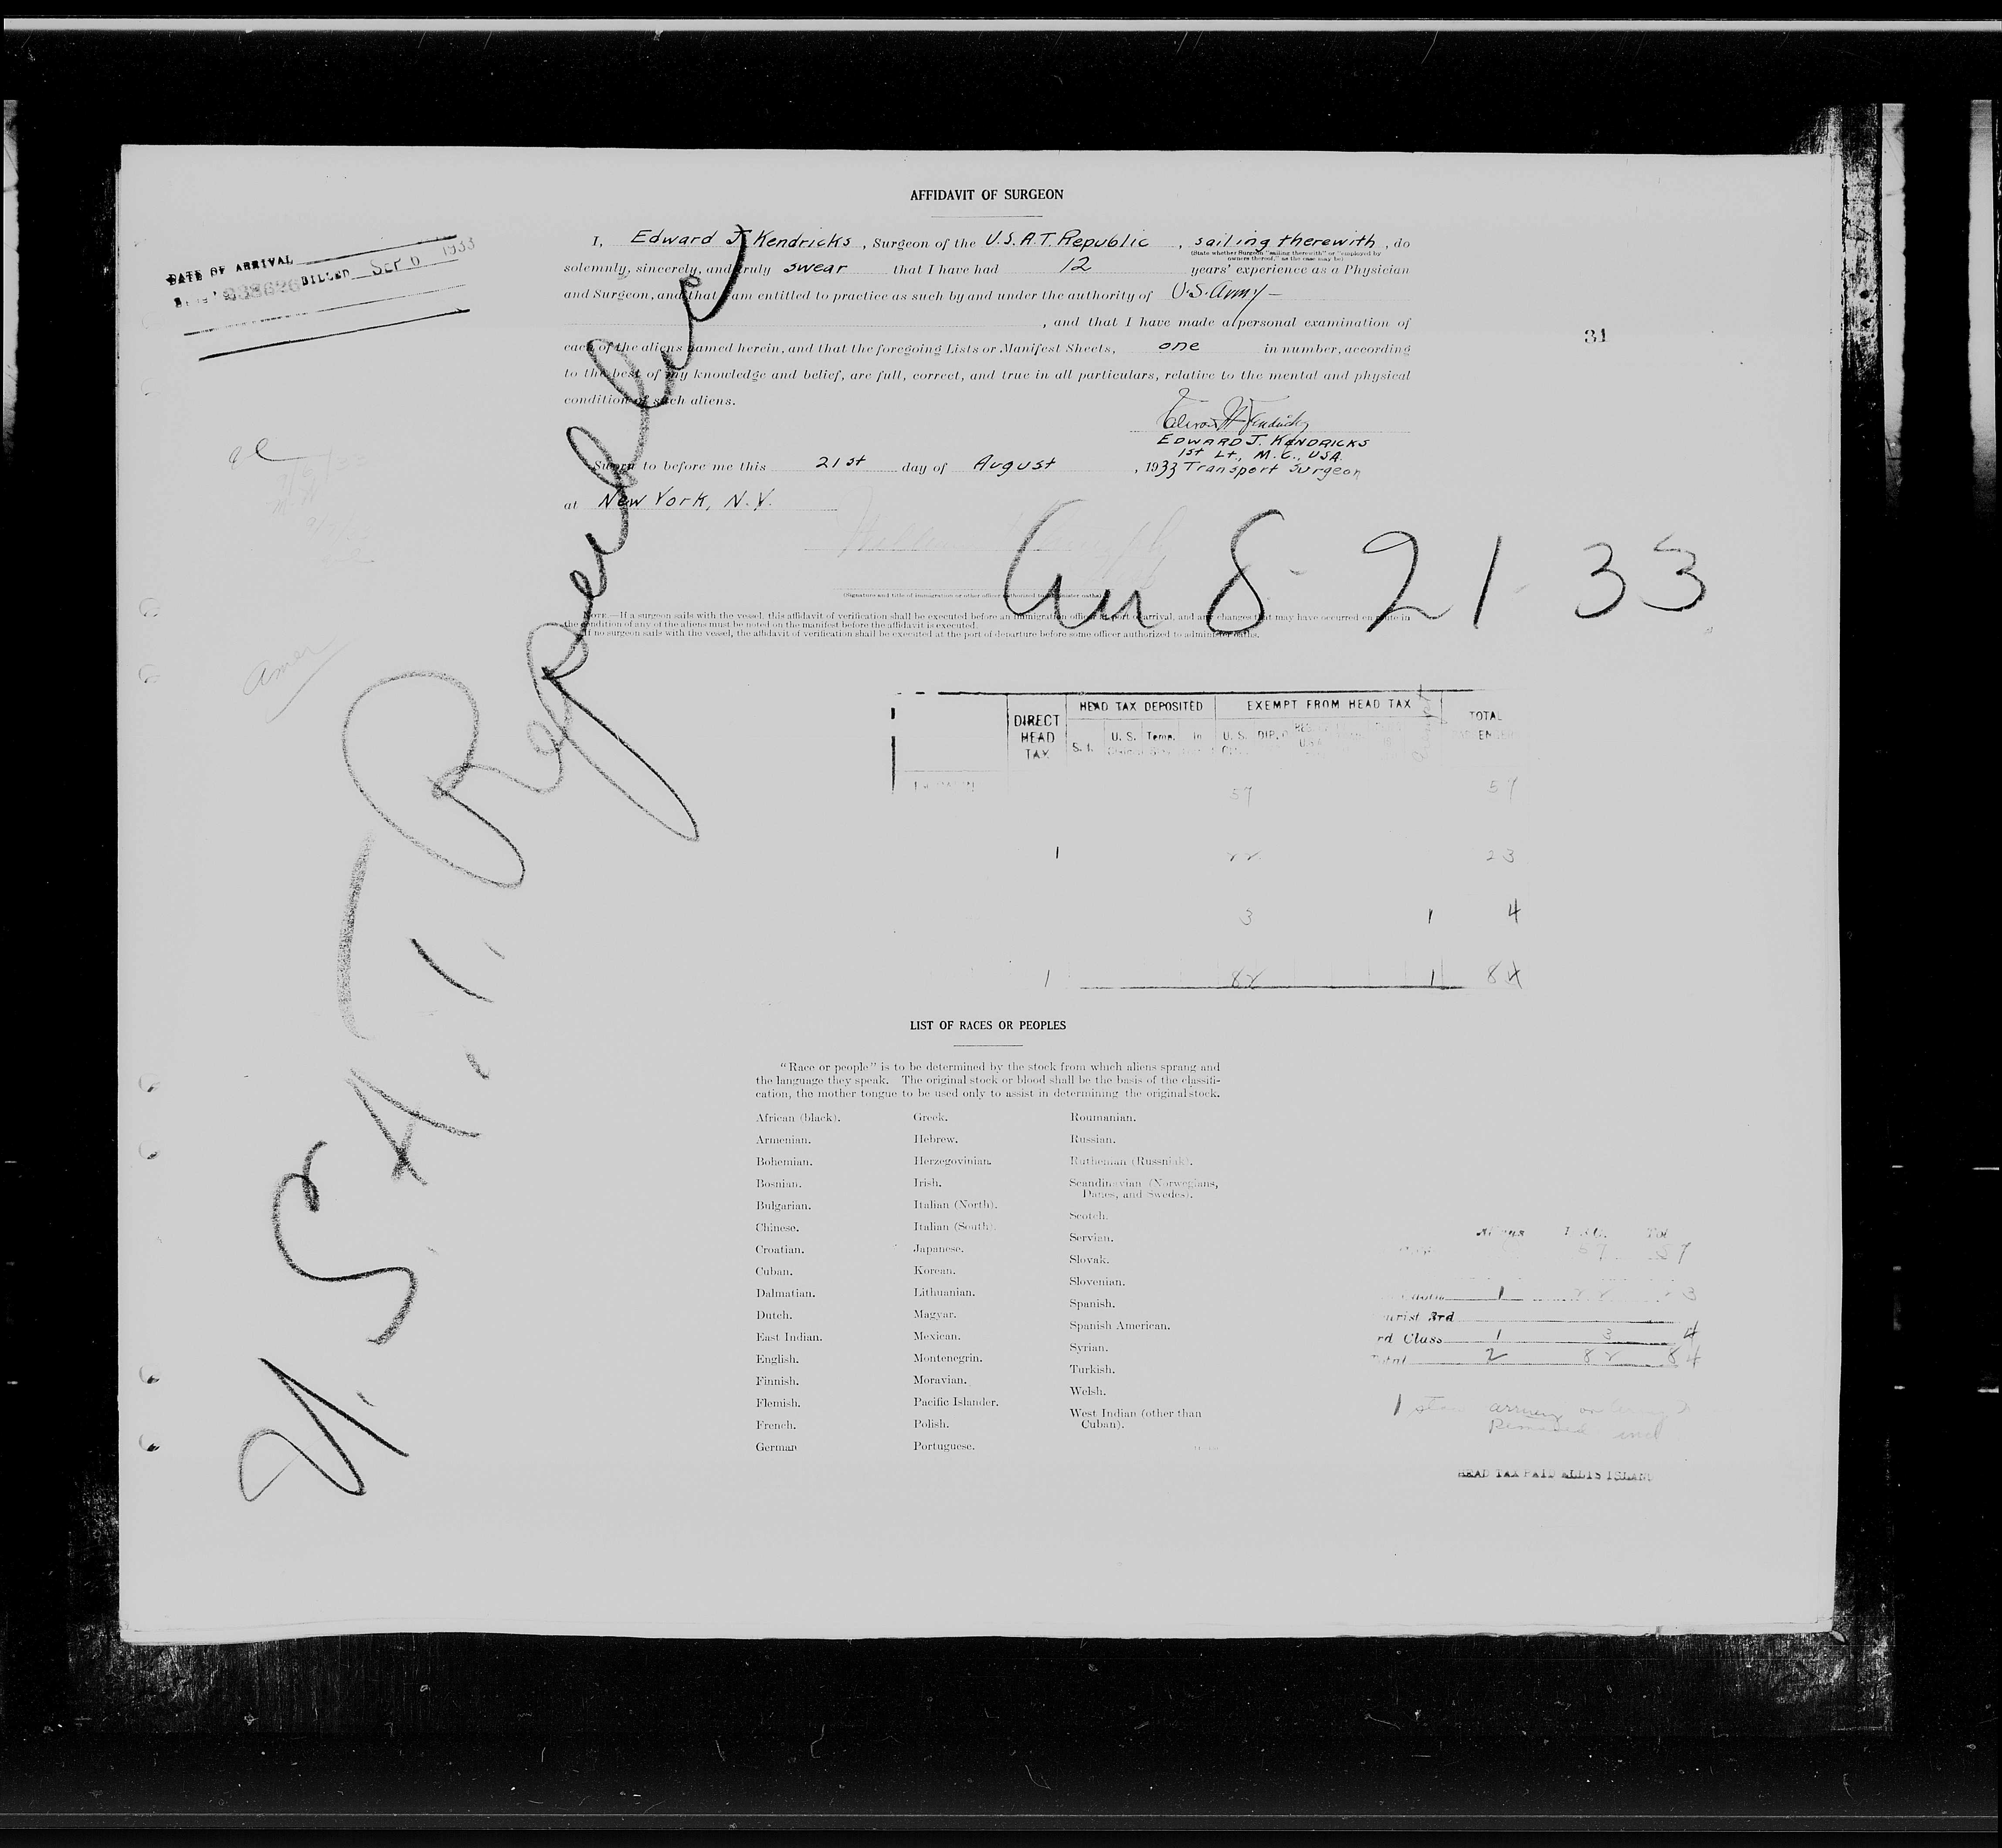 AFFIDAVIT OF SURGEON
DATE OF ARRIVAL
BILLED SEP 6 1933
I, Edward J. Kendricks, Surgeon of the U.S.A.T. Republic, sailing therewith, do
(State whether Surgeon "sailing therewith" or "employed by
owners thereof," as the case may be)
solemnly, sincerely, and truly swear that I have had 12 years' experience as a Physician
and Surgeon, and that I am entitled to practice as such by and under the authority of U.S. Army -
, and that I have made a personal examination of
31
each of the aliens named herein, and that the foregoing Lists or Manifest Sheets, one in number, according
to the best of my knowledge and belief, are full, correct, and true in all particulars, relative to the mental and physical
condition of such aliens.
EDWARD J. KENDRICKS
1st Lt., M.C., USA.
Sworn to before me this 21st day of August, 1933 Transport Surgeon
at New York, N.Y.
8 - 21 - 33
(Signature and title of immigration or other officer authorized to administer oaths)
NOTE.—If a surgeon sails with the vessel, this affidavit of verification shall be executed before an immigration officer at port of arrival, and any changes that may have occurred en route in
the condition of any of the aliens must be noted on the manifest before the affidavit is executed.
If no surgeon sails with the vessel, the affidavit of verification shall be executed at the port of departure before some officer authorized to administer oaths.
U.S.A.T. Republic
DIRECT HEAD TAX
HEAD TAX DEPOSITED
EXEMPT FROM HEAD TAX
TOTAL
S. I. U. S. Temp. In U. S. DIP.
57 57
1 22 23
3 1 4
1 82 1 84
LIST OF RACES OR PEOPLES
"Race or people" is to be determined by the stock from which aliens sprang and
the language they speak. The original stock or blood shall be the basis of the classifi-
cation, the mother tongue to be used only to assist in determining the original stock.
African (black). Greek. Roumanian.
Armenian. Hebrew. Russian.
Bohemian. Herzegovinian. Ruthenian (Russniak).
Bosnian. Irish. Scandinavian (Norwegians,
Danes, and Swedes).
Bulgarian. Italian (North). Scotch.
Chinese. Italian (South). Servian.
Croatian. Japanese. Slovak.
Cuban. Korean. Slovenian.
Dalmatian. Lithuanian. Spanish.
Dutch. Magyar. Spanish American.
East Indian. Mexican. Syrian.
English. Montenegrin. Turkish.
Finnish. Moravian. Welsh.
Flemish. Pacific Islander. West Indian (other than
Cuban).
French. Polish.
German Portuguese.
Tot
1 22 23
urist 3rd
rd Class 1 3 4
Total 2 82 84
HEAD TAX PAID ELLIS ISLAND